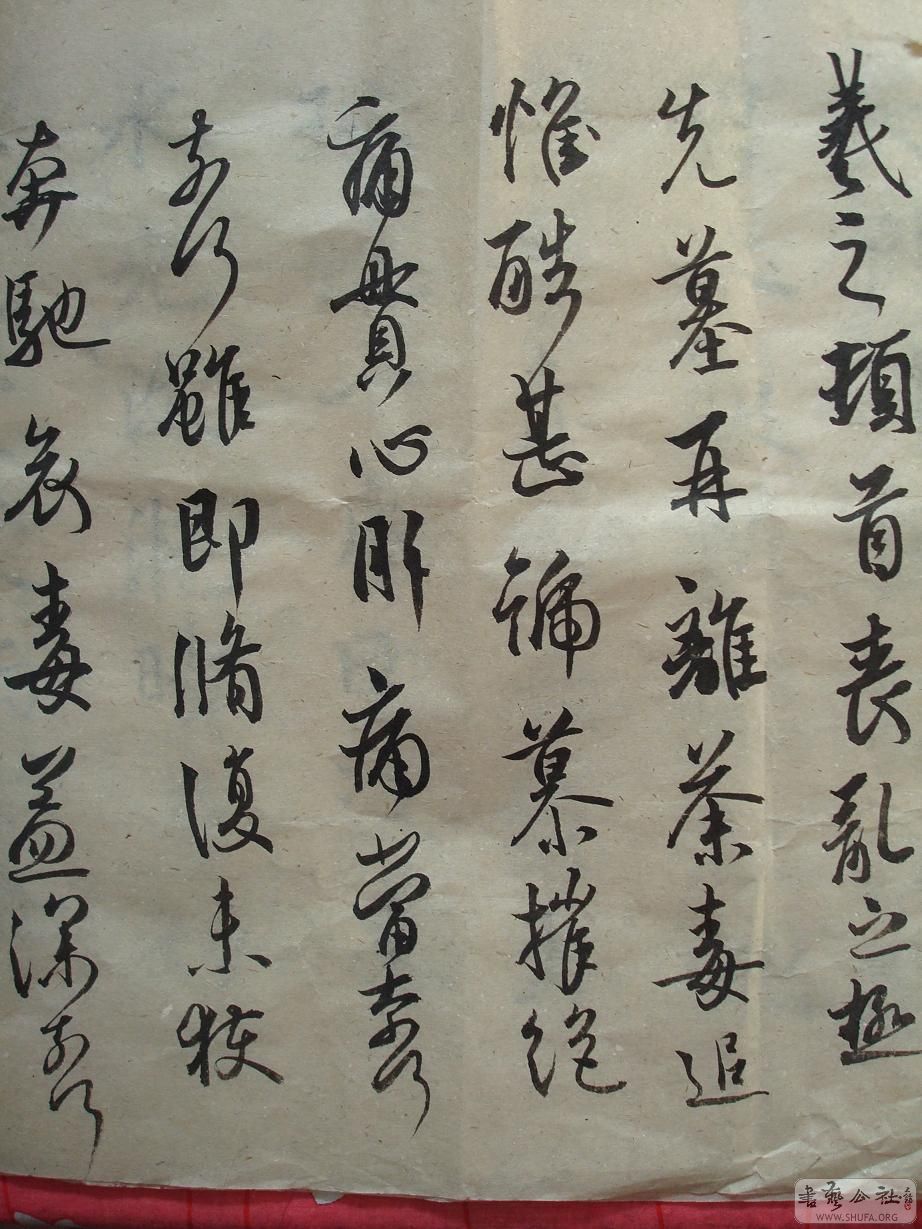 羲之頓首喪亂之極
先墓再離荼毒追
惟酷甚號慕摧絶
痛貫心肝痛當奈何
奈何雖即脩復未獲
奔馳哀毒益深奈何
書藝公社
WWW.SHUFA.ORG